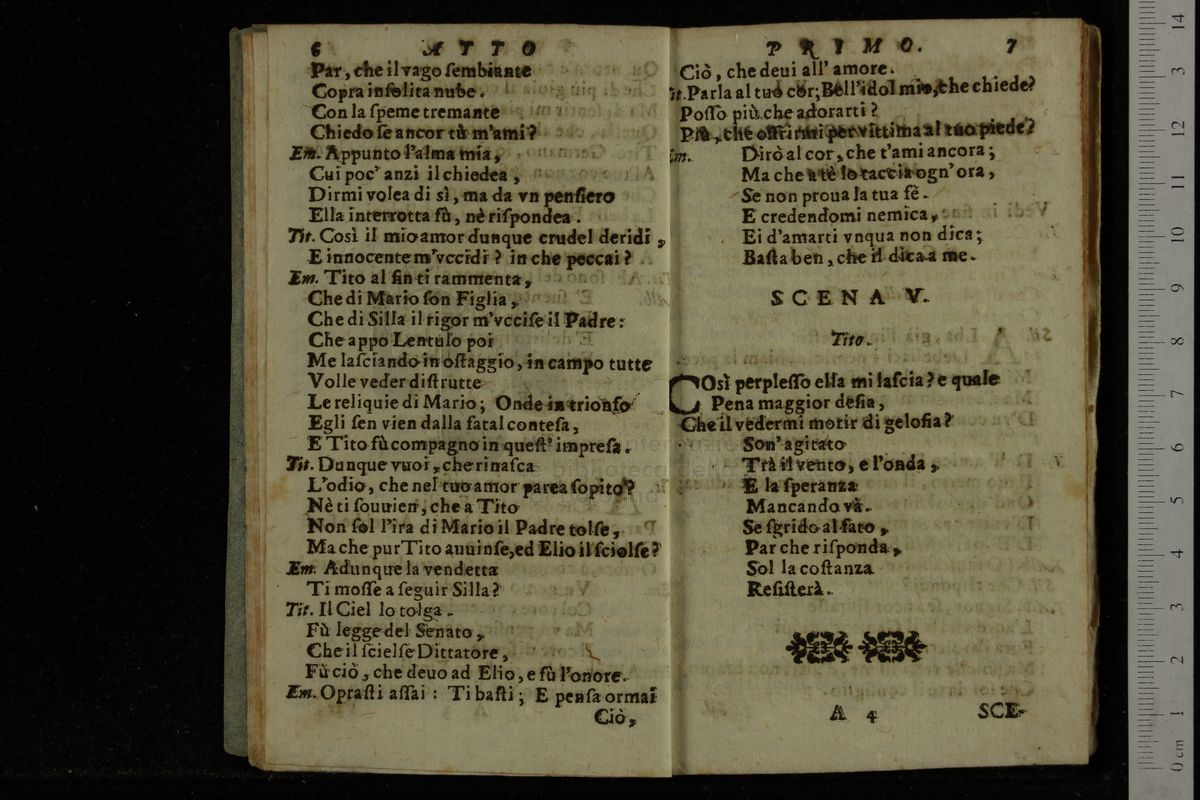 6 ATTO
Par, che il vago ſembiante
Copra inſolita nube.
Con la ſpeme tremante
Chiedo ſe ancor tù m'ami?
Em. Appunto l'alma mia,
Cui poc' anzi il chiedea,
Dirmi volea di sì, ma da vn penſiero
Ella interrotta fù, nè riſpondea.
Tit. Così il mio amor dunque crudel deridi,
E innocente m'vccidi? in che peccai?
Em. Tito al fin ti rammenta,
Che di Mario ſon Figlia,
Che di Silla il rigor m'vcciſe il Padre:
Che appo Lentulo poi
Me laſciando in oſtaggio, in campo tutte
Volle veder diſtrutte
Le reliquie di Mario; Onde in trionfo
Egli ſen vien dalla fatal conteſa,
E Tito fù compagno in queſt' impreſa.
Tit. Dunque vuoi, che rinaſca
L'odio, che nel tuo amor parea ſopito?
Nè ti ſouuien, che a Tito
Non ſol l'ira di Mario il Padre tolſe,
Ma che pur Tito auuinſe, ed Elio il ſciolſe?
Em. Adunque la vendetta
Ti moſſe a ſeguir Silla?
Tit. Il Ciel lo tolga.
Fù legge del Senato,
Che il ſcielſe Dittatore,
Fù ciò, che deuo ad Elio, e fù l'onore.
Em. Opraſti aſſai: Ti baſti; E penſa ormai
Ciò,
PRIMO. 7
Ciò, che deui all' amore.
it. Parla al tuo cor; Bell'idol mio, che chiede?
Poſſo più che adorarti?
Più, che offrirmi per vittima al tuo piede?
Em. Dirò al cor, che t'ami ancora;
Ma che a tè lo taccia ogn' ora,
Se non proua la tua fè.
E credendomi nemica,
Ei d'amarti vnqua non dica;
Baſta ben, che il dica a me.
SCENA V.
Tito.
COsì perpleſſo ella mi laſcia? e quale
Pena maggior deſia,
Che il vedermi morir di geloſia?
Son' agitato
Trà il vento, e l'onda,
E la ſperanza
Mancando và.
Se ſgrido al fato,
Par che riſponda,
Sol la coſtanza
Reſiſterà.
A 4 SCE-